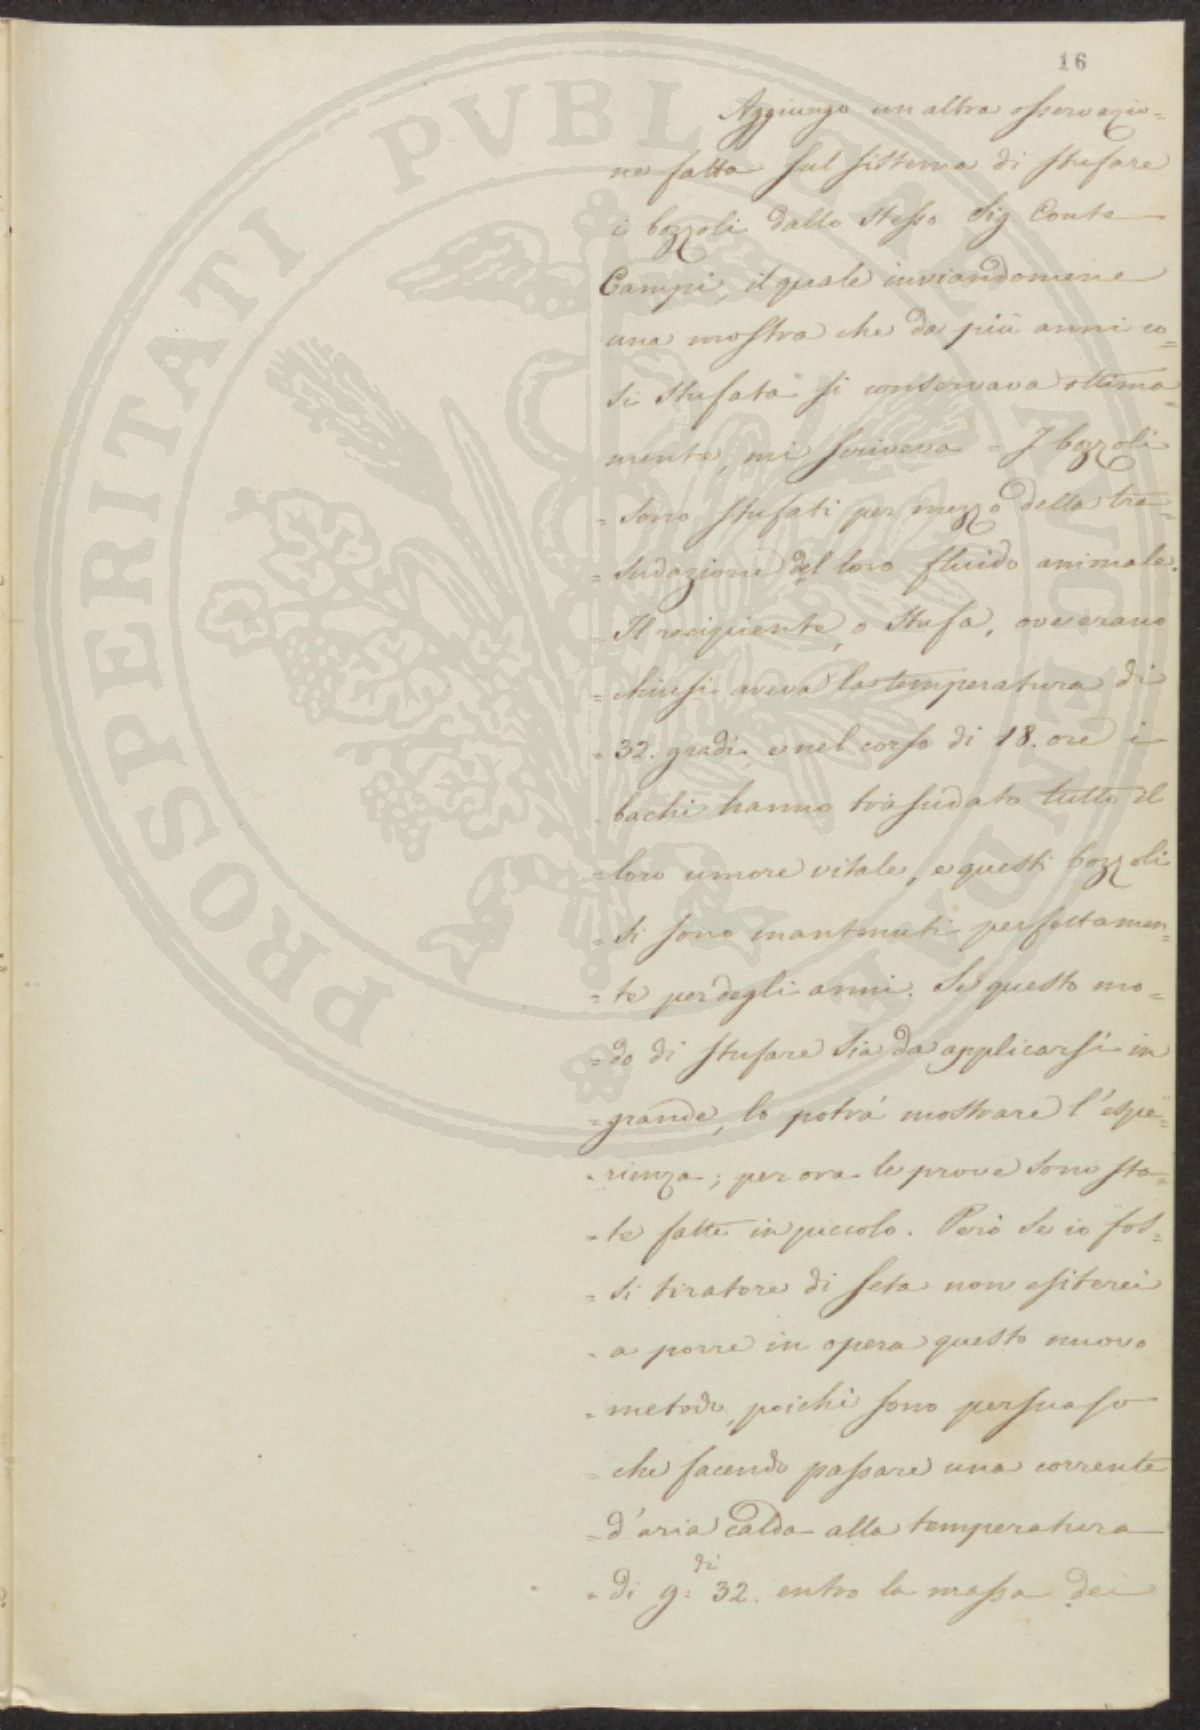 16
Aggiungo un altra osservazio=
ne fatta sul sistema di stufare
i bozzoli dallo stesso Sig. Conte
Campi, il quale inviandomene
una mostra che da più anni co=
sì stufata si conservava ottima=
mente, mi scriveva = I bozzoli
= sono stufati per mezzo della tra=
= sudazione del loro fluido animale.
= Il recipiente, o stufa, ove erano
= chiusi aveva la temperatura di
= 32. gradi, e nel corso di 18. ore i
= bachi hanno trasudato tutto il
= loro umore vitale, e questi bozzoli
= si sono mantenuti perfettamen=
= te per degli anni. Se questo mo=
= do di stufare sia da applicarsi in
= grande, lo potrà mostrare l'espe=
= rienza; per ora le prove sono sta=
= te fatte in piccolo. Però se io fos=
= si tiratore di seta non esiterei
= a porre in opera questo nuovo
= metodo, poichè sono persuaso
= che facendo passare una corrente
= d'aria calda alla temperatura
= di g:di 32. entro la massa dei
PROSPERITATI PVBLICAE AVGENDAE